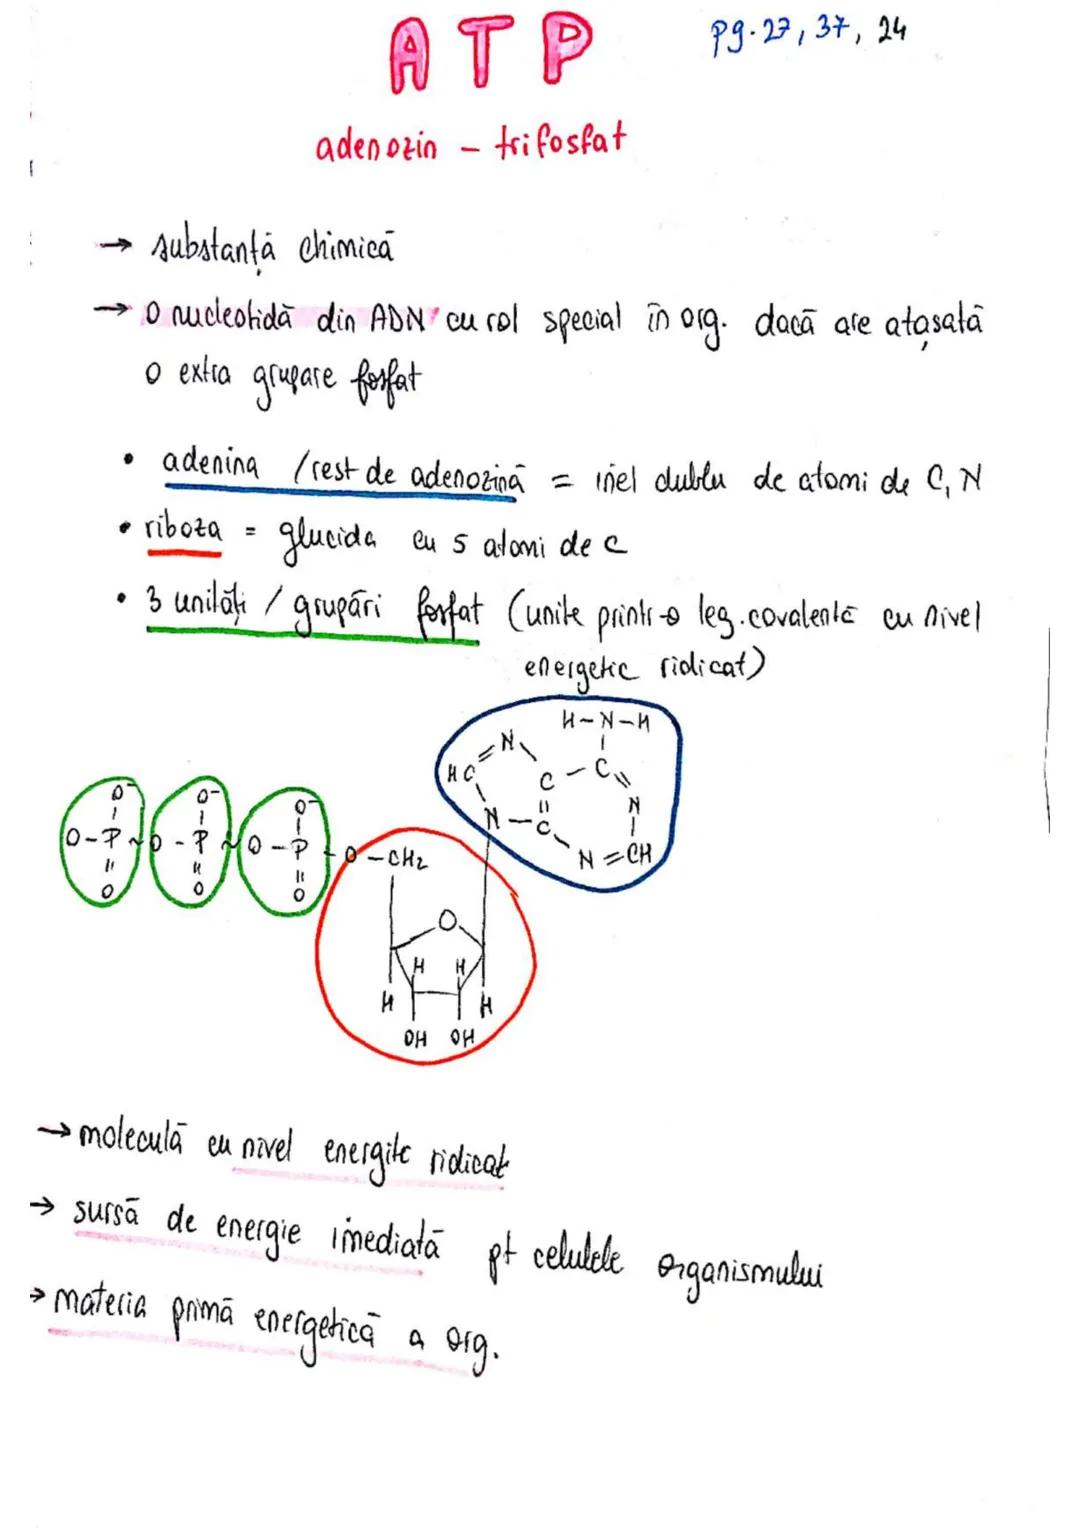 ATP
pg. 27, 37, 24
adenozin - trifosfat
→ substanță chimică
→ O nucleotidă din ADN cu rol special în org. dacă are atașată
o extra grupare fosfat
• adenina / rest de adenozină = inel dublu de atomi de C, N
• riboza = glucida cu 5 atomi de C
• 3 unități / grupări fosfat (unite printr-o leg. covalentă cu nivel
energetic ridicat)
H-N-H
N
HC
C - C
N
N - C
N = CH
O⁻ O⁻ O⁻
O-P~O-P~O-P-O-CH2
O O O
O
H H
H H
OH OH
→ moleculă cu nivel energitc ridicat
→ sursă de energie imediată pt celulele organismului
→ materia primă energetică a org.